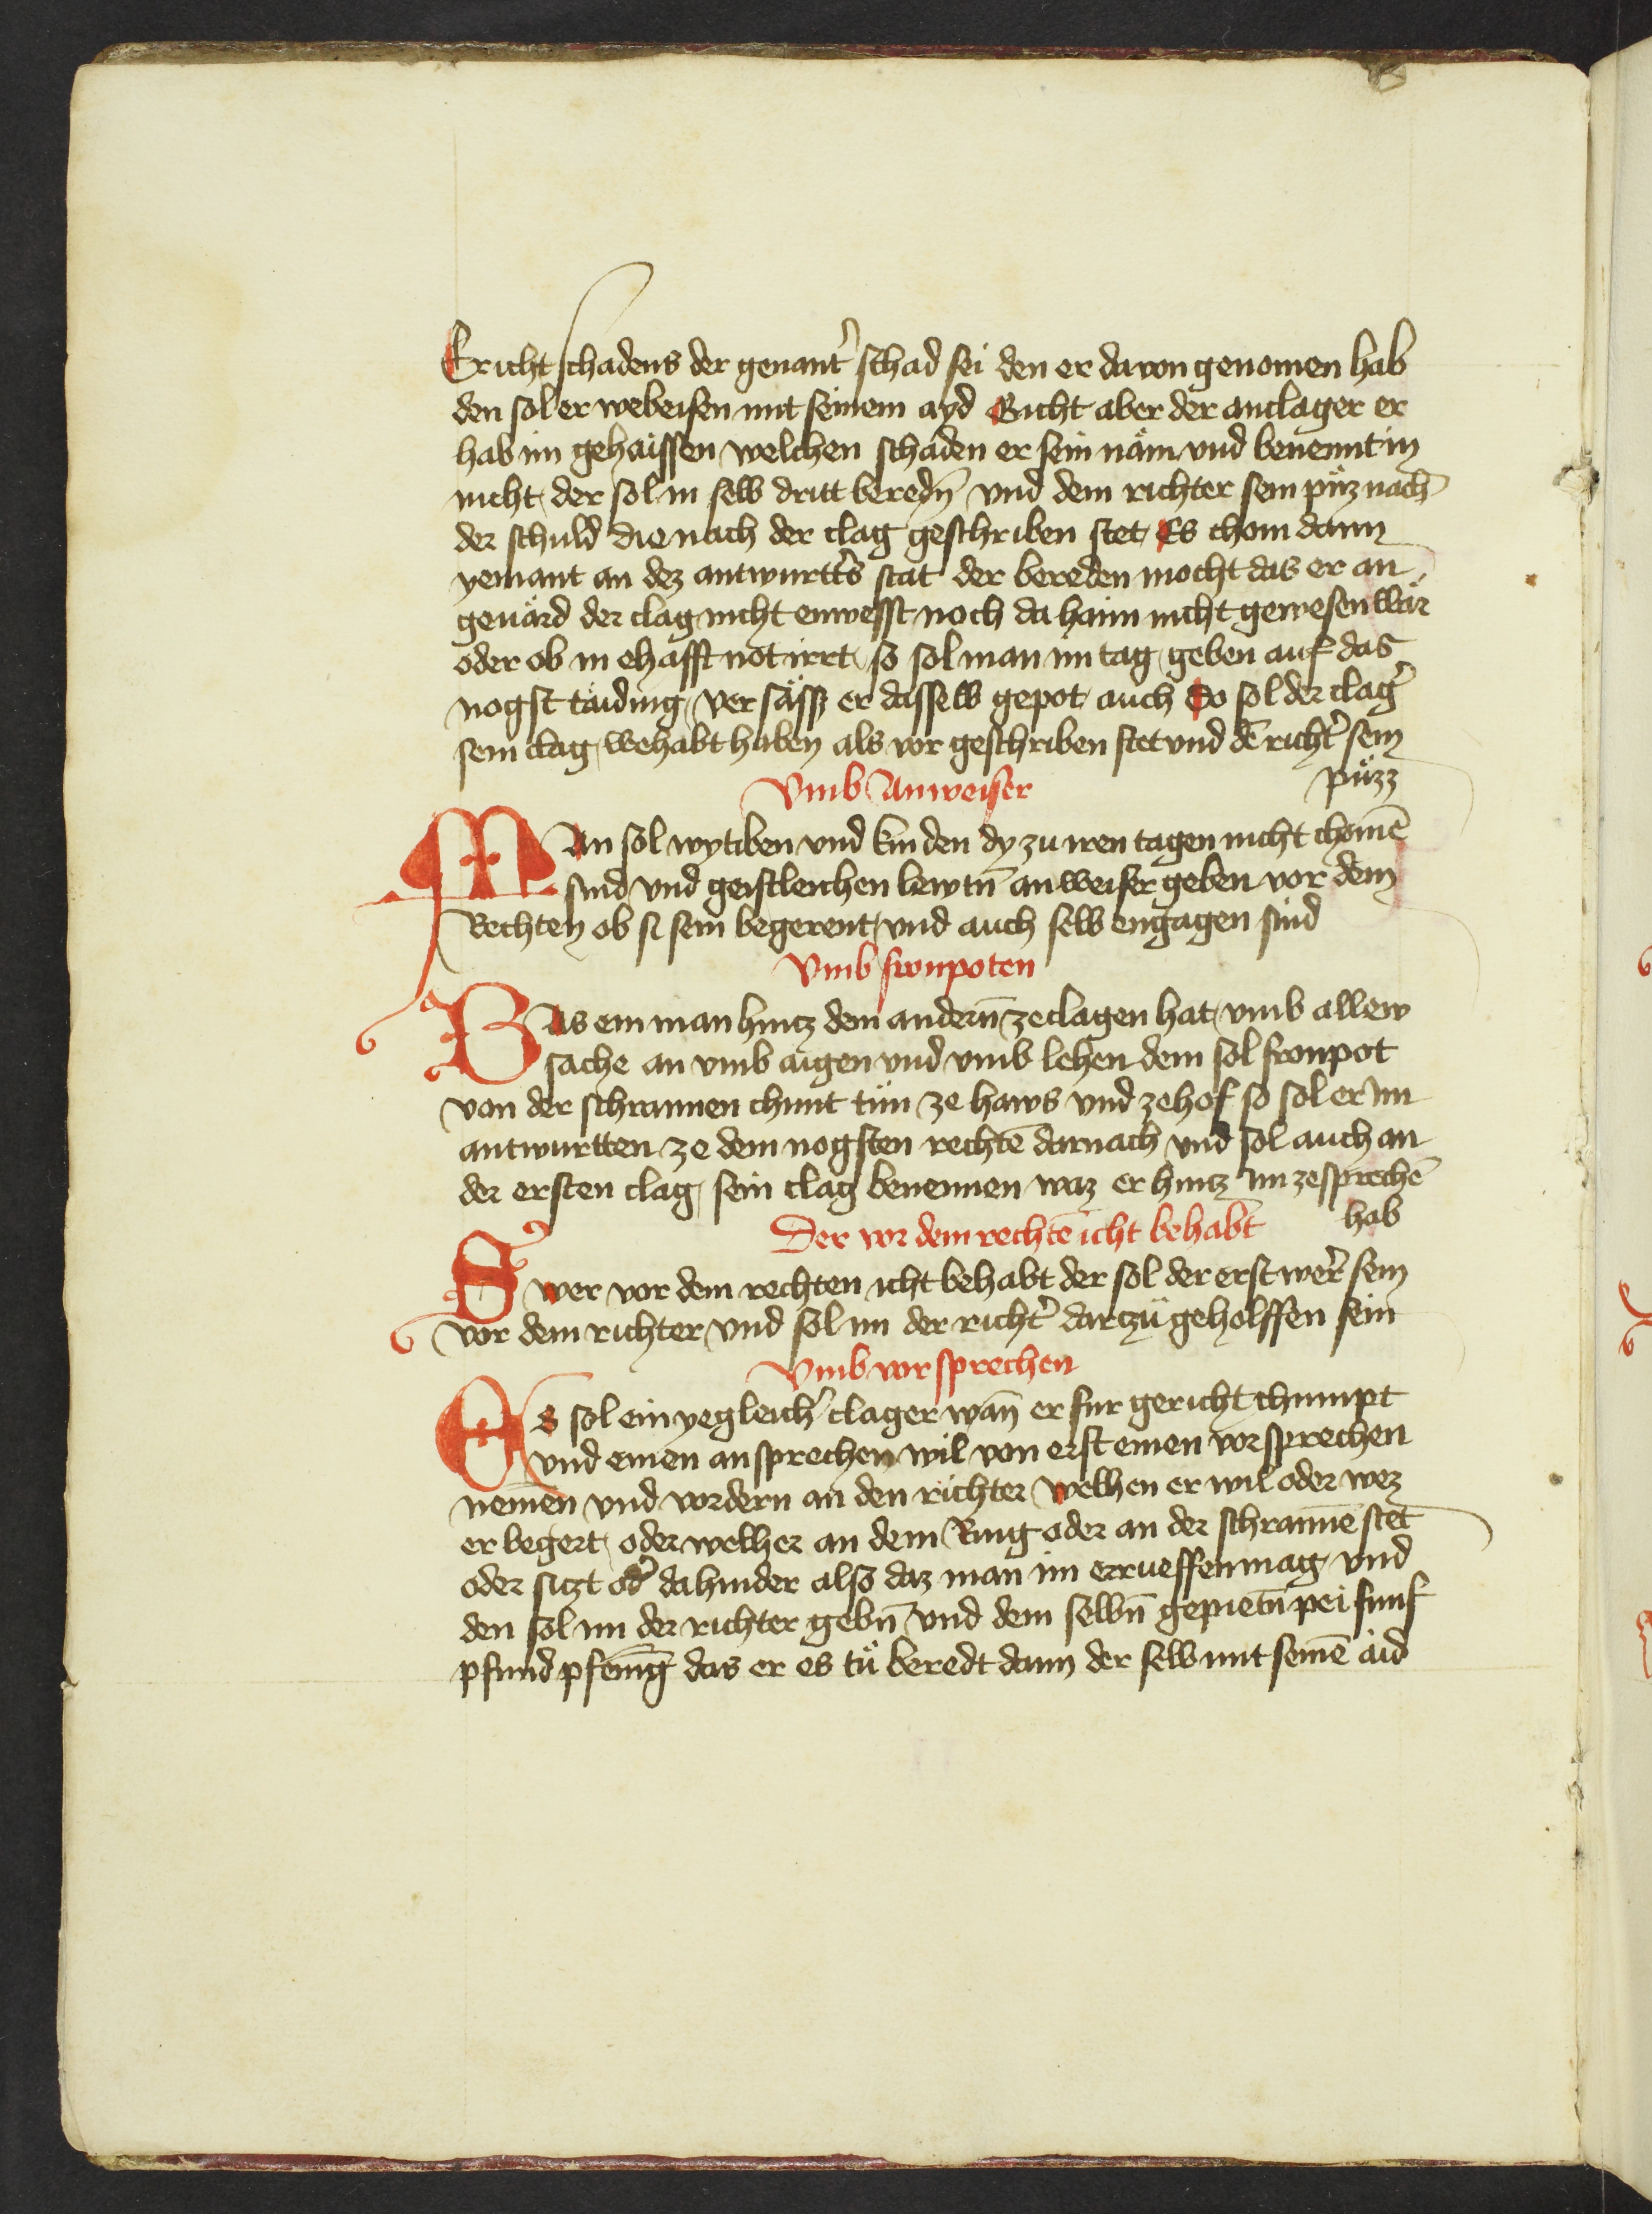 Ericht schadens der genant' schad sei den er dauon genomen hab
den sol er webeisen mit seinem ayd Gicht aber der anclager er
hab im gehaissen welchen schaden er sein näm vnd benennt in
nicht der sol in selb dritt beredn̄ vnd dem richter sein püz nach
der schuld die nach der clag geschriben stet Es chom dann
yemant an dez antwurtt's stat der bereden mocht das er an
geuärd der clag nicht enwesst noch da haim nicht gewesen wär
oder ob in ehafft not irrt so sol man im tag geben auf das
nogst taiding ver sässz er dasselb gepot auch Do sol der clag'
sein clag wehabt haben als vor geschriben stet vnd dē richt' sein
püzz
Vmb Anweiser
MAn sol wytiben vnd kinden dy zu iren tagen nicht chomē
sind vnd geistleichen lewtn̄ anweiser geben vor dem
Rechten ob si sein begerent vnd auch selb engagen sind
Vmb fronpoten
Was ein man hintz dem andern̄ ze clagen hat vmb allew
sache an vmb aigen vnd vmb lehen dem sol fronpot
von der schrannen chunt tün ze haws vnd ze hof so sol er im
antwurtten ze dem nogsten rechtē darnach vnd sol auch an
der ersten clag sein clag benennen waz er hintz im ze sprechē
hab
Der vor dem rechtē icht behabt
Swer vor dem rechten icht behabt der sol der erst wer' sein
vor dem richter vnd sol im der richt' dartzü geholffen sein
Vmb vorsprechen
Es sol ein yegleich' clager wan̄ er fur gericht chumpt
vnd einen ansprechen wil von erst einen vorsprechen
nemen vnd vordern an den richter welhen er wil oder wez
er begert oder welher an dem Ring oder an der schrannē stet
oder sitzt od' dahinder also daz man im errueffen mag vnd
den sol im der richter gebn̄ vnd dem selbn̄ gepietn̄ pei funf
pfund pfenīg das er es tü beredt dann der selb mit seinē aid